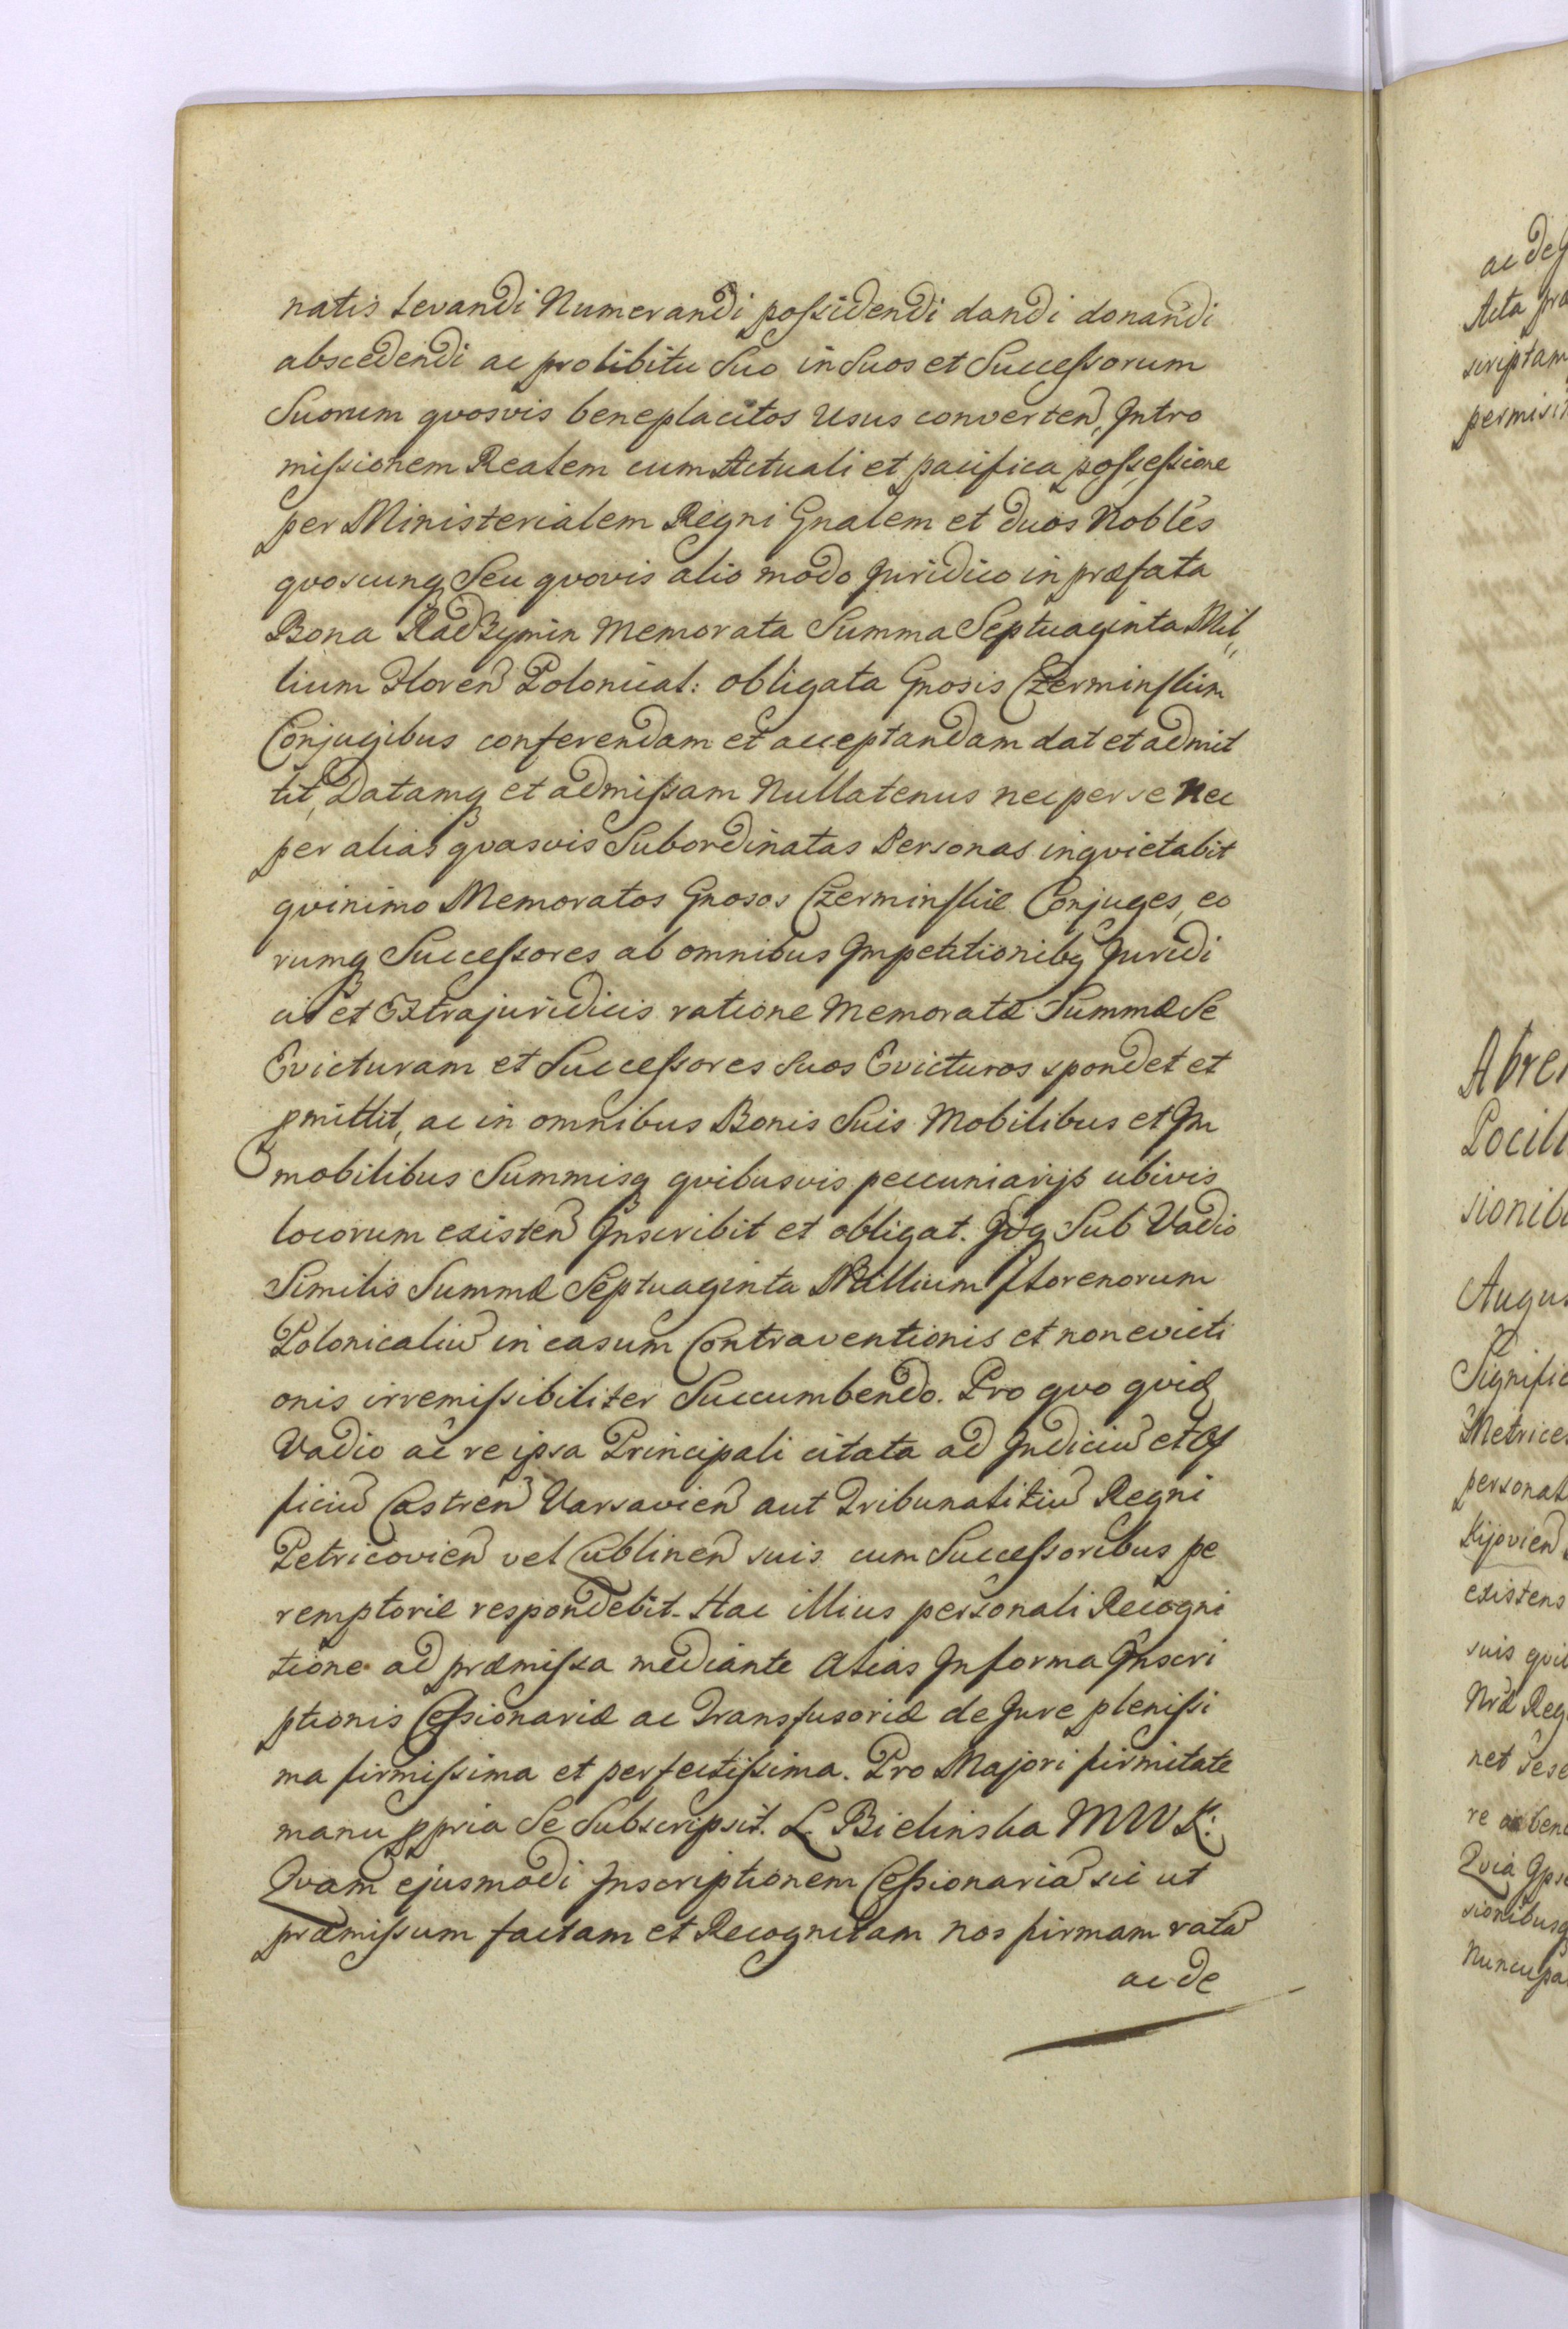 natis Levandi Numerandi possidendi dandi donandi
abscedendi ac prolibitu Suo in Suos et Successorum
Suorum qvosvis beneplacitos Usus converten, Intro
missionem Realem cum Actuali et pacifica possessione
per Ministerialem Regni Gnalem et duos Nobles
qvoscunq Seu qvovis alio modo Juridico in præfata
Bona Radzymin Memorata Summa Septuaginta Mil„
lium Floren Polonical: obligata Gnosis Czerminskim
Conjugibus conferendam et acceptandam dat et admit
tit, Datamq et admissam Nullatenus nec per se Nec
per alias qvasvis Subordinatas Personas inqvietabit
qvinimo Memoratos Gnosos Czerminskie Conjuges, eo
rumq Successores ab omnibus Impetitionibq Juridi
cis et Extrajuridicis ratione Memoratæ Summæ Se
Evicturam et Successores Suos Evicturos spondet et
pmittit, ac in omnibus Bonis Suis Mobilibus et Im
mobilibus Summisq qvibusvis peccuniarijs ubivis
locorum existen Inscribit et obligat. Idq Sub Vadio
Similis Summæ Septuaginta Millium florenorum
Polonicaliu in casum Contraventionis et non evicti
onis irremissibiliter Succumbendo. Pro qvo qvid
Vadio ac re ipsa Principali citata ad Judiciu et Of
ficiu Castren Varsavien aut Tribunalitiu Regni
Petricovien vel Lublinen suis cum Successoribus pe
remptorie respondebit. Hac illius personali Recogni
tione ad præmissa mediante Alias In forma Inscri
ptionis Cessionariæ ac Transfusoriæ de Jure plenissi
ma firmissima et perfectissima. Pro Majori firmitate
manu ppria Se Subscripsit. L. Bielinska M W K:
Qvam ejusmodi Inscriptionem Cessionaria sic ut
præmissum factam et Recognitam nos firmam rata
ac de
ac de
Acta
permisi
Abre
Augus
Signific
Metrice
personal
Kijovien
existens
suis qvi
Nræ Reg
net sese
re ac ben
Qvia Ipse
sionibusq
Nuncupa